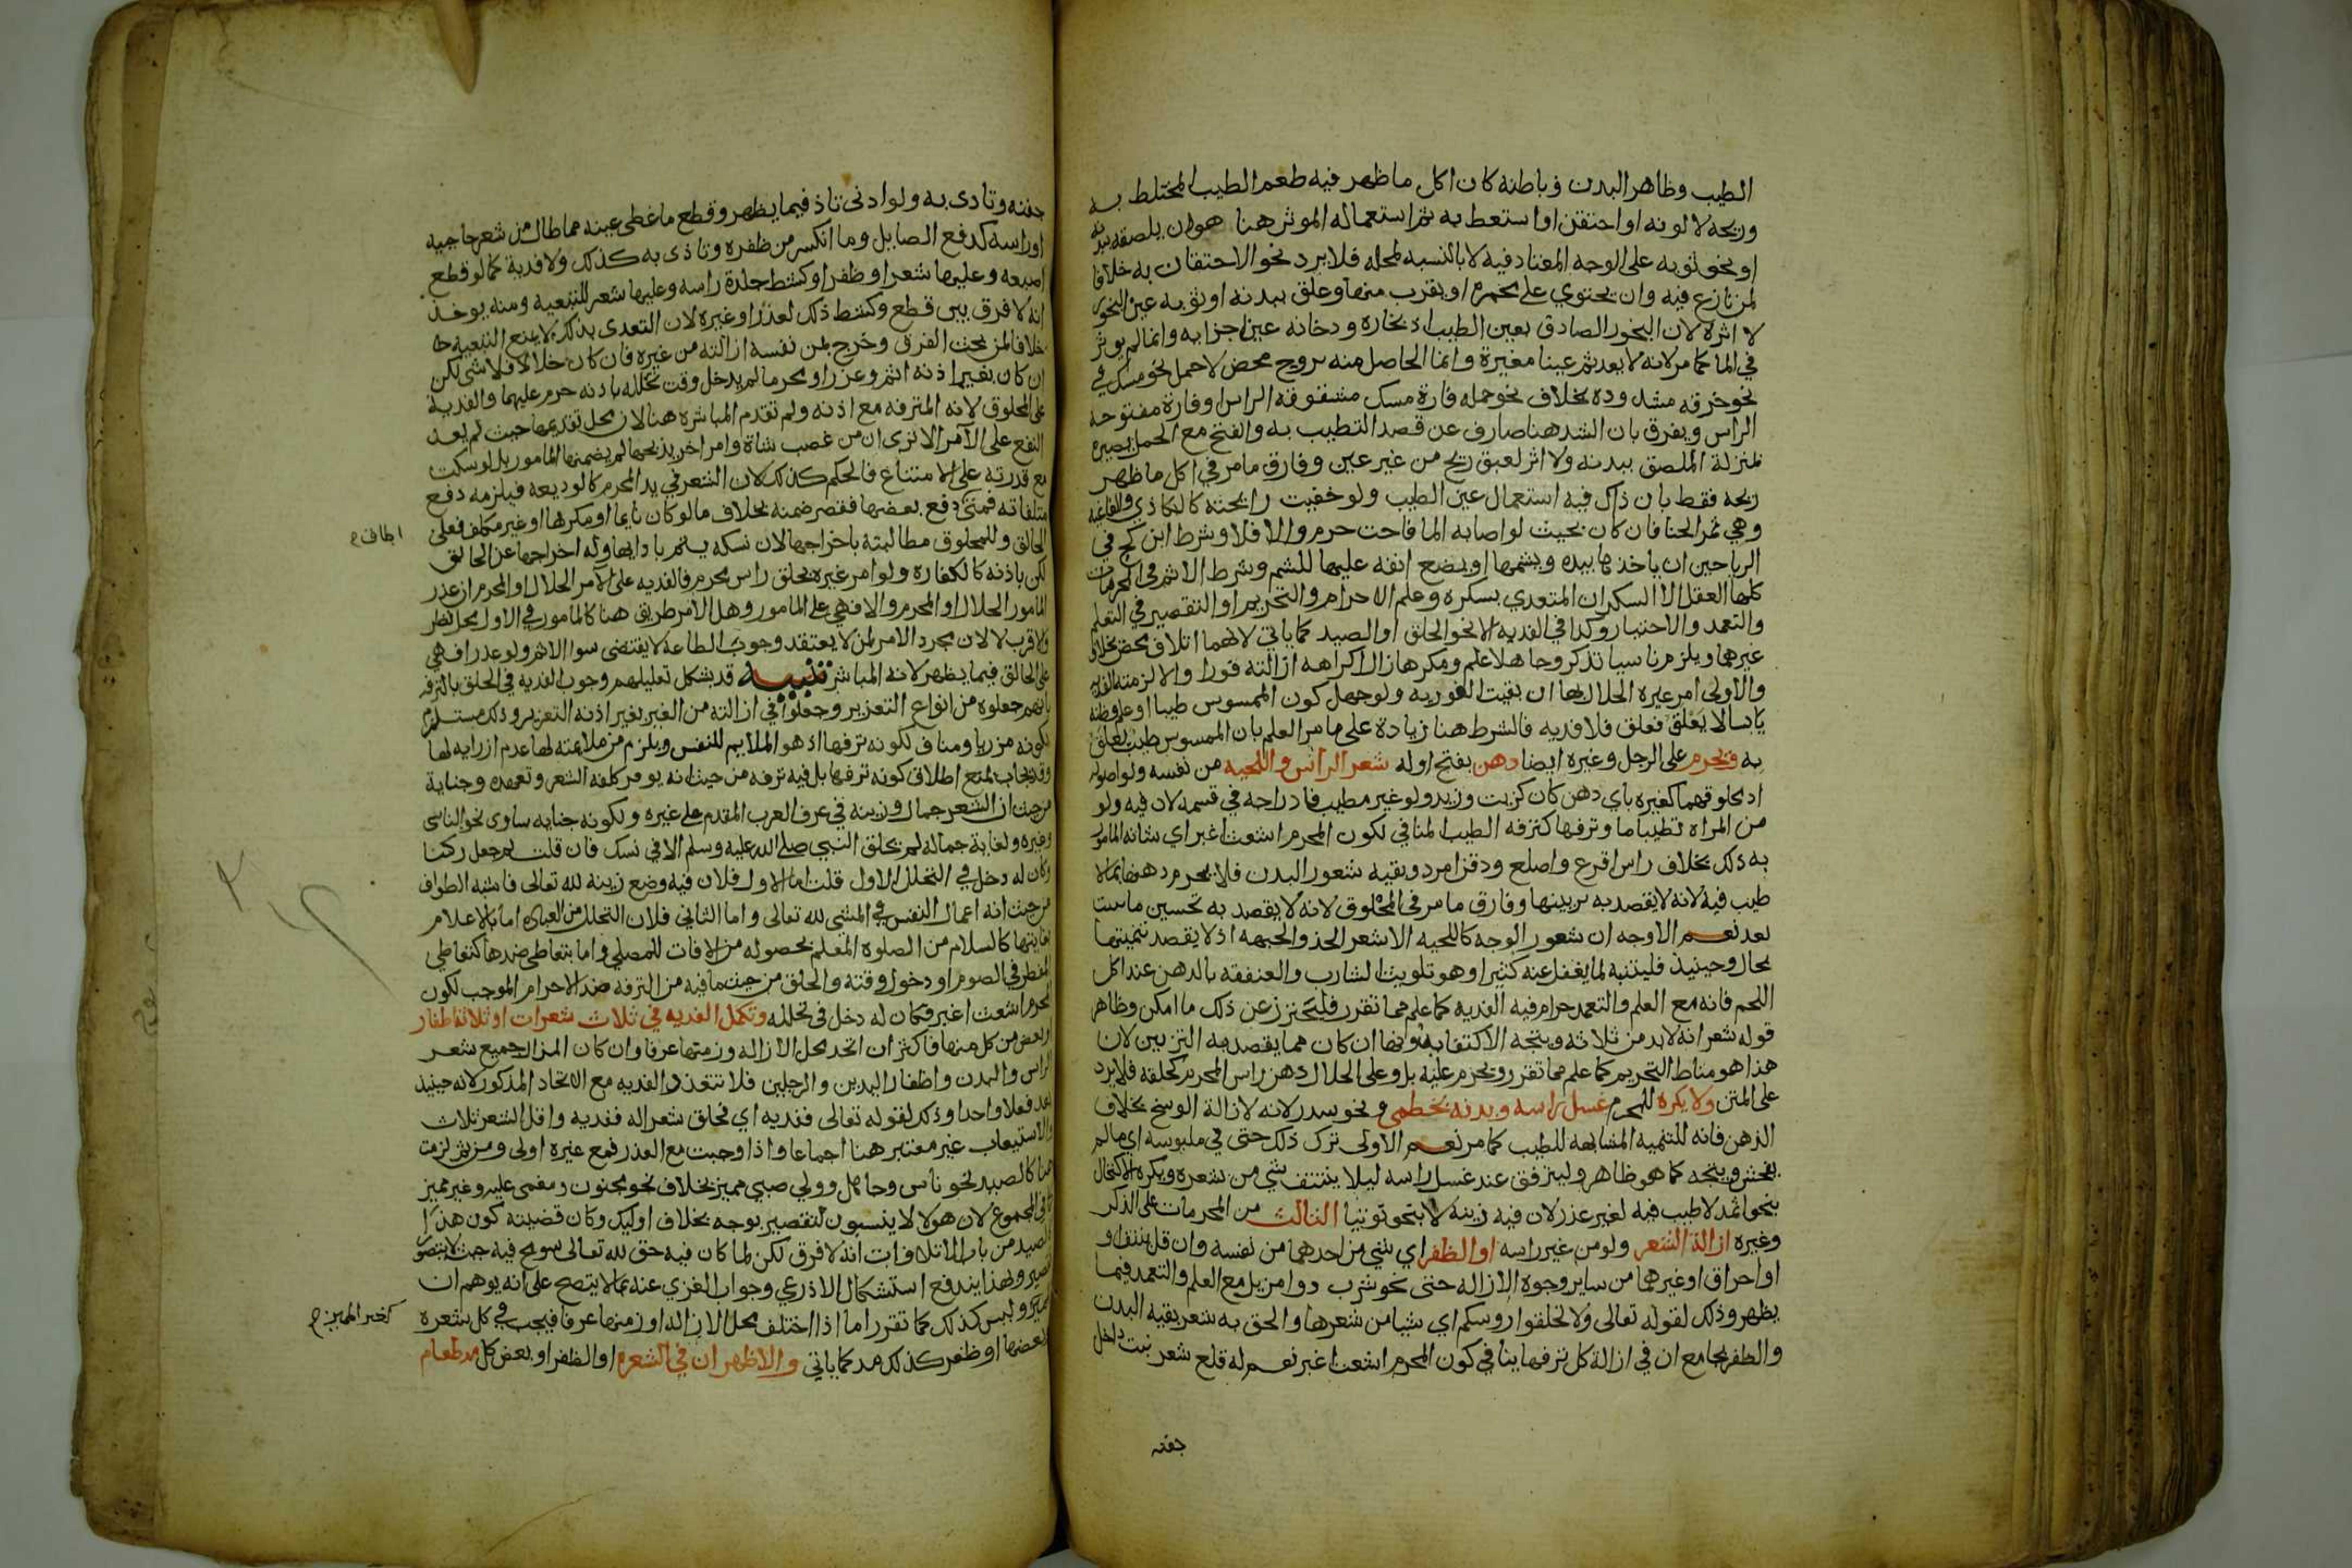 الطيب وظاهر البدن وباطنه كان اكل ما ظهر فيه طعم الطيب المختلط به
وريحه لا لونه او احتقن او استعط به ثم استعماله الموثر هنا هو ان يلصقه ببدنه
او بنحو ثوبه على الوجه المعتاد فيه لا بالنسبه لمحله فلا يرد نحو الاحتقان به خلافا
لمن نازع فيه وان يحتوي على مجمرة او يقرب منها وعلق ببدنه او ثوبه عين البخور
لا اثره لان البخور الصادق بعين الطيب اذ بخاره ودخانه عين اجزايه وانما لم يوثر
في الما كما مر لانه لا يعد ثم عينا مغيرة وانما الحاصل منه تروح محض لا حمل نحو مسك في
نحو خرقه مشدوده بخلاف نحو حمله فارة مسك مشقوقه الراس او قارة مفتوحة
الراس ويفرق بان الشد هنا صارف عن قصد التطيب به والفتح مع الحمل يصيره
بمنزلة الملصق ببدنه ولا اثر لعبق ريح من غير عين وفارق ما مر في اكل ما ظهر
ريحه فقط بان ذاك فيه استعمال عين الطيب ولو خفيت رايحته كالكاذي والفاغيه
وهي ثمر الحنا فان كان بحيث لو اصابه الما فاحت حرم والا فلا وشرط ابن كج في
الرياحين ان ياخذها بيده ويشمها او يضع انفه عليها للشم وشرط الاثم في المحرمات
كلها العقل الا السكران المتعدي بسكره وعلم الاحرام والتحريم او التقصير في التعلم
والتعمد والاختيار وكذا في الفديه الا نحو الحلق او الصيد كما ياتي لانهما اتلاف محض بخلاف
غيرهما ويلزم ناسيا تذكر وجاهلا علم ومكرها زال اكراهه ازالته فورا والا لزمته الفديه
والاولى امر غيره الحلال بها ان بقيت الفوريه ولو جهل كون الممسوس طيبا او علمه وظنه
يابسا لا يعلق فعلق فلا فديه فالشرط هنا زيادة على ما مر العلم بان الممسوس طيب يعلق
به ويحرم على الرجل وغيره ايضا دهن بفتح اوله شعر الراس واللحيه من نفسه ولو اصوله
اذ محلوقهما كغيره باي دهن كان كزيت وزبد ولو غير مطيب فادراجه في قسمه لان فيه ولو
من المراه تطيبا ما وترفها كترفه الطيب المنافي لكون المحرم اشعث اغبر اي شانه المامور
به ذلك بخلاف راس اقرع واصلع وذقن امرد وبقيه شعور البدن فلا يحرم دهنها بما لا
طيب فيه لانه لا يقصد به تزيينها وفارق ما مر في المحلوق لانه لا يقصد به تحسين ما ينبت
بعد نعم الاوجه ان شعور الوجه كاللحيه الا شعر الخد والجبهه اذ لا يقصد تنميتها
بحال وحينيذ فليتنبه لما يغفل عنه كثيرا وهو تلويث الشارب والعنفقه بالدهن عند اكل
اللحم فانه مع العلم والتعمد حرام فيه الفديه كما علم مما تقرر فليحترز عن ذلك ما امكن وظاهر
قوله شعر انه لا بد من ثلاثه ويتجه الاكتفا بدونها ان كان مما يقصد به التزيين لان
هذا هو مناط التحريم كما علم مما تقرر ويحرم عليه بل وعلى الحلال دهن راس المحرم كحلقه فلا يرد
على المتن ولا يكره للمحرم غسل راسه وبدنه بخطمي ونحو سدر لانه لازالة الوسخ بخلاف
الدهن فانه للتنميه المشابهه للطيب كما مر نعم الاولى ترك ذلك حتى في ملبوسه اي ما لم
يفحش ويتجه كما هو ظاهر وليترفق عند غسل راسه ليلا ينتتف شي من شعره ويكره الاكتحال
بنحو اثمد لا طيب فيه لغير عذر لان فيه زينه لا بنحو توتيا الثالث من المحرمات على الذكر
وغيره ازالة الشعر ولو من غير راسه او الظفر اي شي من احدهما من نفسه وان قل بنتف او
او احراق او غيرهما من ساير وجوه الازاله حتى نحو شرب دوا مزيل مع العلم والتعمد فيما
يظهر وذلك لقوله تعالى ولا تحلقوا روسكم اي شيا من شعرها والحق به شعر بقيه البدن
والظفر بجامع ان في ازالة كل ترفها ينافي كون المحرم اشعث اغبر نعم له قلع شعر نبت داخل
جفنه
جفنه وتاذى به ولو ادنى تاذ فيما يظهر وقطع ما غطى عينه مما طال من شعر حاجبيه
او راسه كدفع الصايل وما انكسر من ظفره وتاذى به كذلك ولا فدية كما لو قطع
اصبعه وعليها شعر او ظفر او كشط جلدة راسه وعليها شعر للتبعيه ومنه يوخذ
انه لا فرق بين قطع وكشط ذلك لعذر او غيره لان التعدي بذلك لا يمنع التبعيه
خلافا لمن بحث الفرق وخرج بمن نفسه ازالته من غيره فان كان حلالا فلا شي لكن
ان كان بغير اذنه اثم وعزر او محرما لم يدخل وقت تحلله باذنه حرم عليهما والفدية
على المحلوق لانه المترفه مع اذنه ولم تقدم المباشره هنا لان محل تقديمها حيث لم يعد
النفع على الآمر الا ترى ان من غصب شاة وامر اخر بذبحها لم يضمنها المامور بل لو سكت
مع قدرته على الامتناع فالحكم كذلك لان الشعر في يد المحرم كالوديعه فيلزمه دفع
متلفاته فمتى دفع بعضها فقصر ضمنه بخلاف ما لو كان نايما او مكرها او غير مكلف فعلى
الحالق وللمحلوق مطالبته باخراجها لان نسكه يتم بادايها وله اخراجها عن الحالق
لكن باذنه كالكفاره ولو امر غيره بحلق راس محرم فالفديه على الآمر الحلال او المحرم ان عذر
المامور الحلال او المحرم والا فهي على المامور وهل الامر طريق هنا كالمامور في الاول محل نظر
والاقرب لا لان مجرد الامر لمن لا يعتقد وجوب الطاعة لا يقتضي سوا الاثم ولو عذرا فهي
على الحالق فيما يظهر لانه المباشر تنبيه قد يشكل تعليلهم وجوب الفديه في الحلق بالترفه
بانهم جعلوه من انواع التعزير وجعلوا في ازالته من الغير بغير اذنه التعزير وذلك مستلزم
لكونه مزريا ومناف لكونه ترفها اذ هو الملايم للنفس ويلزم من ملايمته لها عدم ازرايه لها
وقد يجاب بمنع اطلاق كونه ترفها بل فيه ترفه من حيث انه يوفر كلفه الشعر وتعهده وجناية
من حيث ان الشعر جمال وزينه في عرف العرب المقدم على غيره ولكونه جنايه ساوى نحو الناسي
وغيره ولغاية جماله لم يحلق النبي صلى الله عليه وسلم الا في نسك فان قلت لم جعل ركنا
وكان له دخل في التحلل الاول قلت اما الاول فلان فيه وضع زينه لله تعالى فاشبه الطواف
من حيث انه اعمال النفس في المشي لله تعالى واما الثاني فلان التحلل من العباده اما بالاعلام
بغايتها كالسلام من الصلوه المعلم بحصوله من الافات للمصلي واما بتعاطي ضدها كتعاطي
المفطر في الصوم او دخول وقته والحلق من حيث ما فيه من الترفه ضد الاحرام الموجب لكون
المحرم اشعث اغبر فكان له دخل في تحلله وتكمل الفديه في ثلاث شعرات او ثلاثة اظفار
او بعض من كل منها فاكثر ان اتحد محل الازاله وزمنها عرفا وان كان المزال جميع شعر
الراس والبدن واظفار اليدين والرجلين فلا تتعدد الفديه مع الاتحاد المذكور لانه حينيذ
يعد فعلا واحدا وذلك لقوله تعالى ففديه اي فحلق شعرا له ففديه واقل الشعر ثلاث
والاستيعاب غير معتبر هنا اجماعا واذا وجبت مع العذر فمع غيره اولى ومن ثم لزمت
هنا كالصيد نحو ناس وجاهل وولي صبي مميز بخلاف نحو مجنون ومغمى عليه وغير مميز
كما في المجموع لان هولا لا ينسبون لتقصير بوجه بخلاف اوليك وكان قضيته كون هذا
الصيد من باب الاتلافات انه لا فرق لكن لما كان فيه حق لله تعالى سومح فيه حيث لا يتصور
تقصير وبهذا يندفع استشكال الاذرعي وجواب الغزي عنه بما لا يتضح على انه يوهم ان
المميز وليس كذلك كما تقرر اما اذا اختلف محل الازاله او زمنها عرفا فيجب في كل شعره
او بعضها او ظفر كذلك مد كما ياتي والاظهر ان في الشعره او الظفر او بعض كل مد طعام
كغير المميز